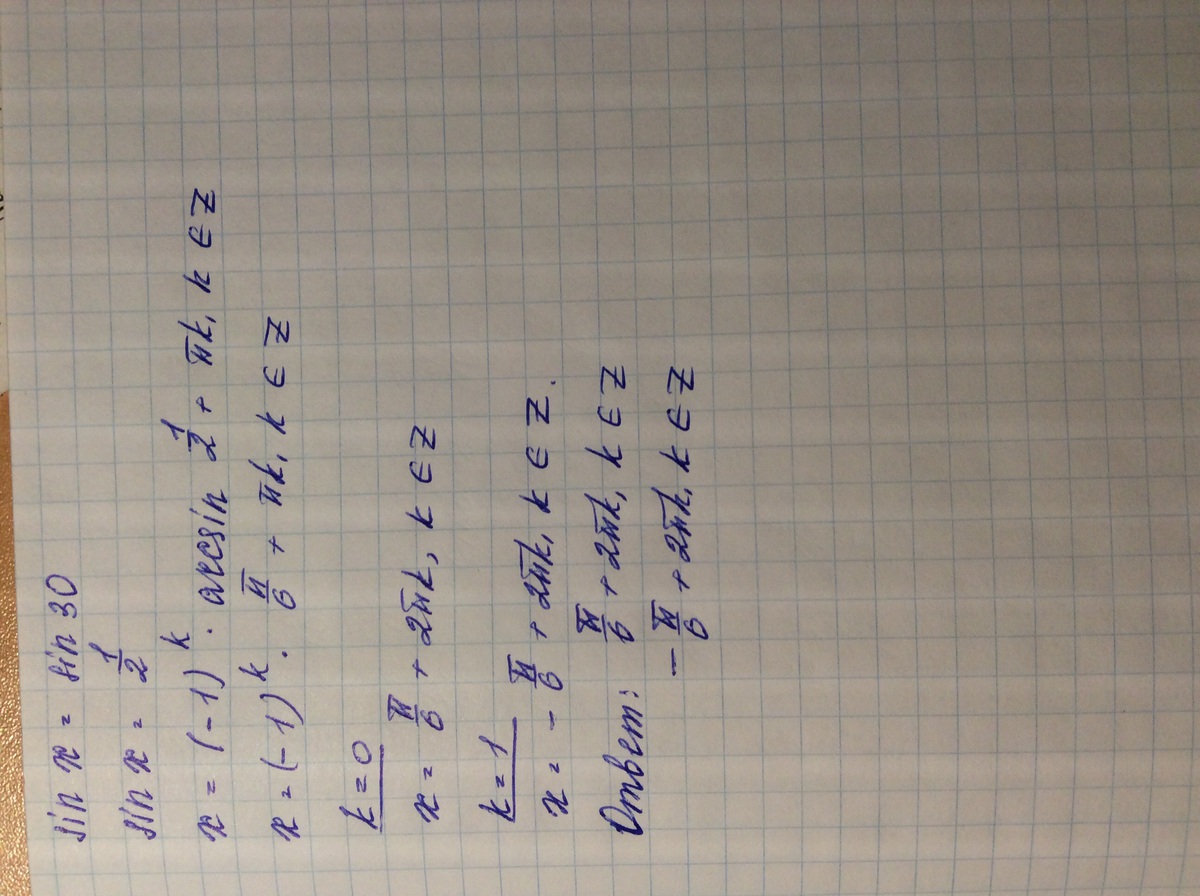 sin x = sin 30
sin x = 1/2
x = (-1)^k · arcsin 1/2 + πk, k ∈ Z
x = (-1)^k · π/6 + πk, k ∈ Z
k = 0
x = π/6 + 2πk, k ∈ Z
k = 1
x = - π/6 + 2πk, k ∈ Z.
Ответ: π/6 + 2πk, k ∈ Z
- π/6 + 2πk, k ∈ Z